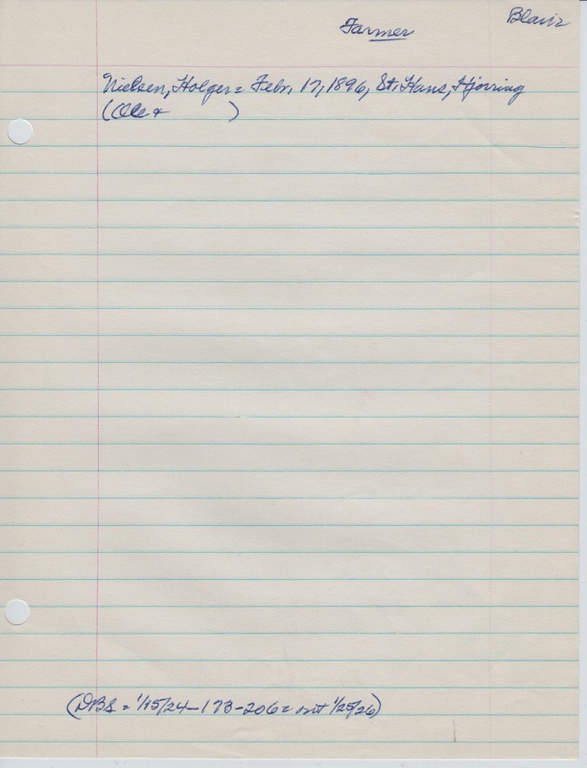 Blair
Farmer
Nielsen, Holger = Febr. 17, 1896, St. Hans, Hjorring
(Ole + )
(DBS = 1/15/24 - 173 - 206 = out 1/25/26)